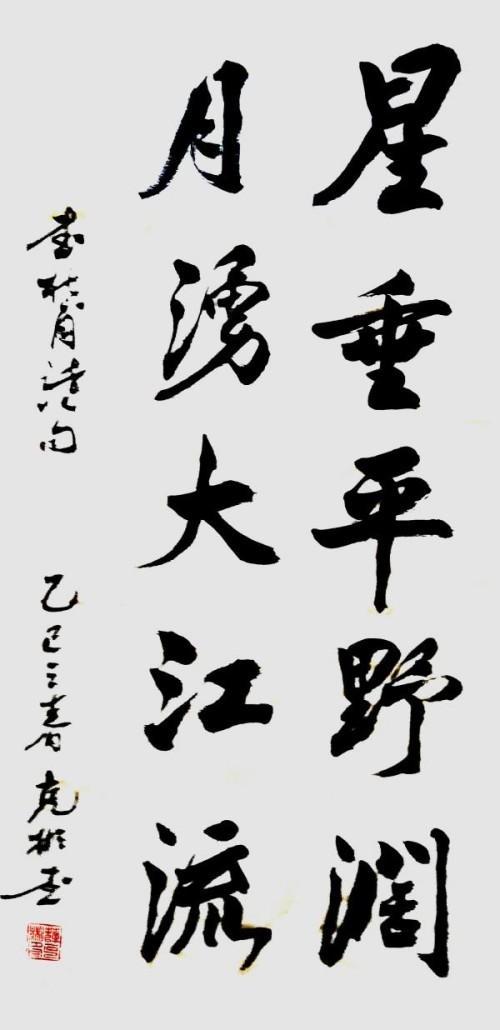 星垂平野濶
月湧大江流
書杜甫詩句 乙巳之春 克彬書